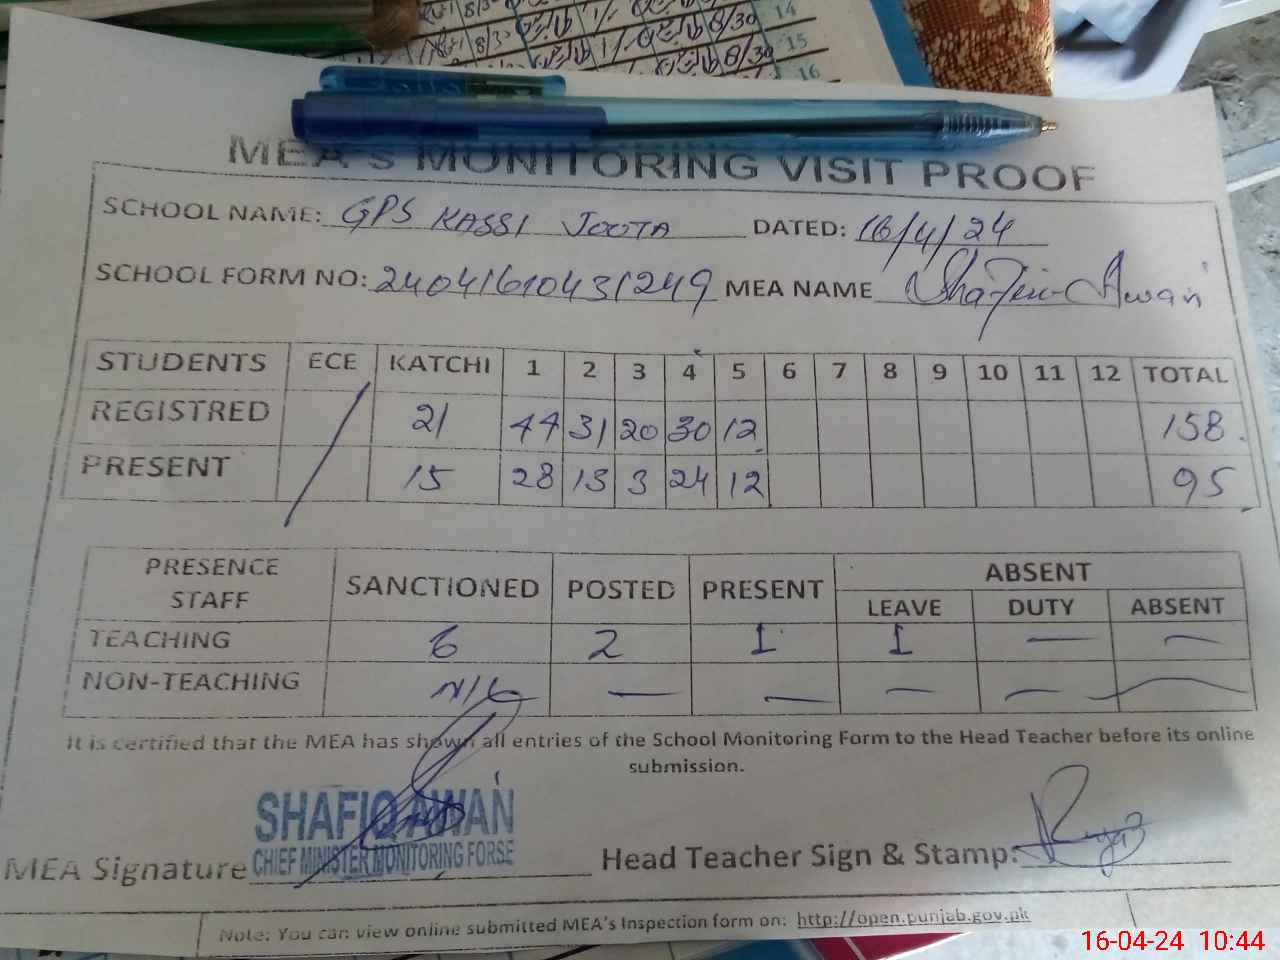 14
15
16
MEA's MONITORING VISIT PROOF
SCHOOL NAME: GPS KASSI JOOTA DATED: 16/4/24
SCHOOL FORM NO: 24041610431249 MEA NAME Shafiq Awan
STUDENTS ECE KATCHI 1 2 3 4 5 6 7 8 9 10 11 12 TOTAL
REGISTRED 21 44 31 20 30 12 158
PRESENT 15 28 13 3 24 12 95
PRESENCE STAFF SANCTIONED POSTED PRESENT ABSENT
LEAVE DUTY ABSENT
TEACHING 6 2 1 1 — —
NON-TEACHING Nil — — — — —
It is certified that the MEA has shown all entries of the School Monitoring Form to the Head Teacher before its online
submission.
SHAFIQ AWAN
CHIEF MINISTER MONITORING FORSE
MEA Signature Head Teacher Sign & Stamp:
Note: You can view online submitted MEA's Inspection form on: http://open.punjab.gov.pk
16-04-24 10:44